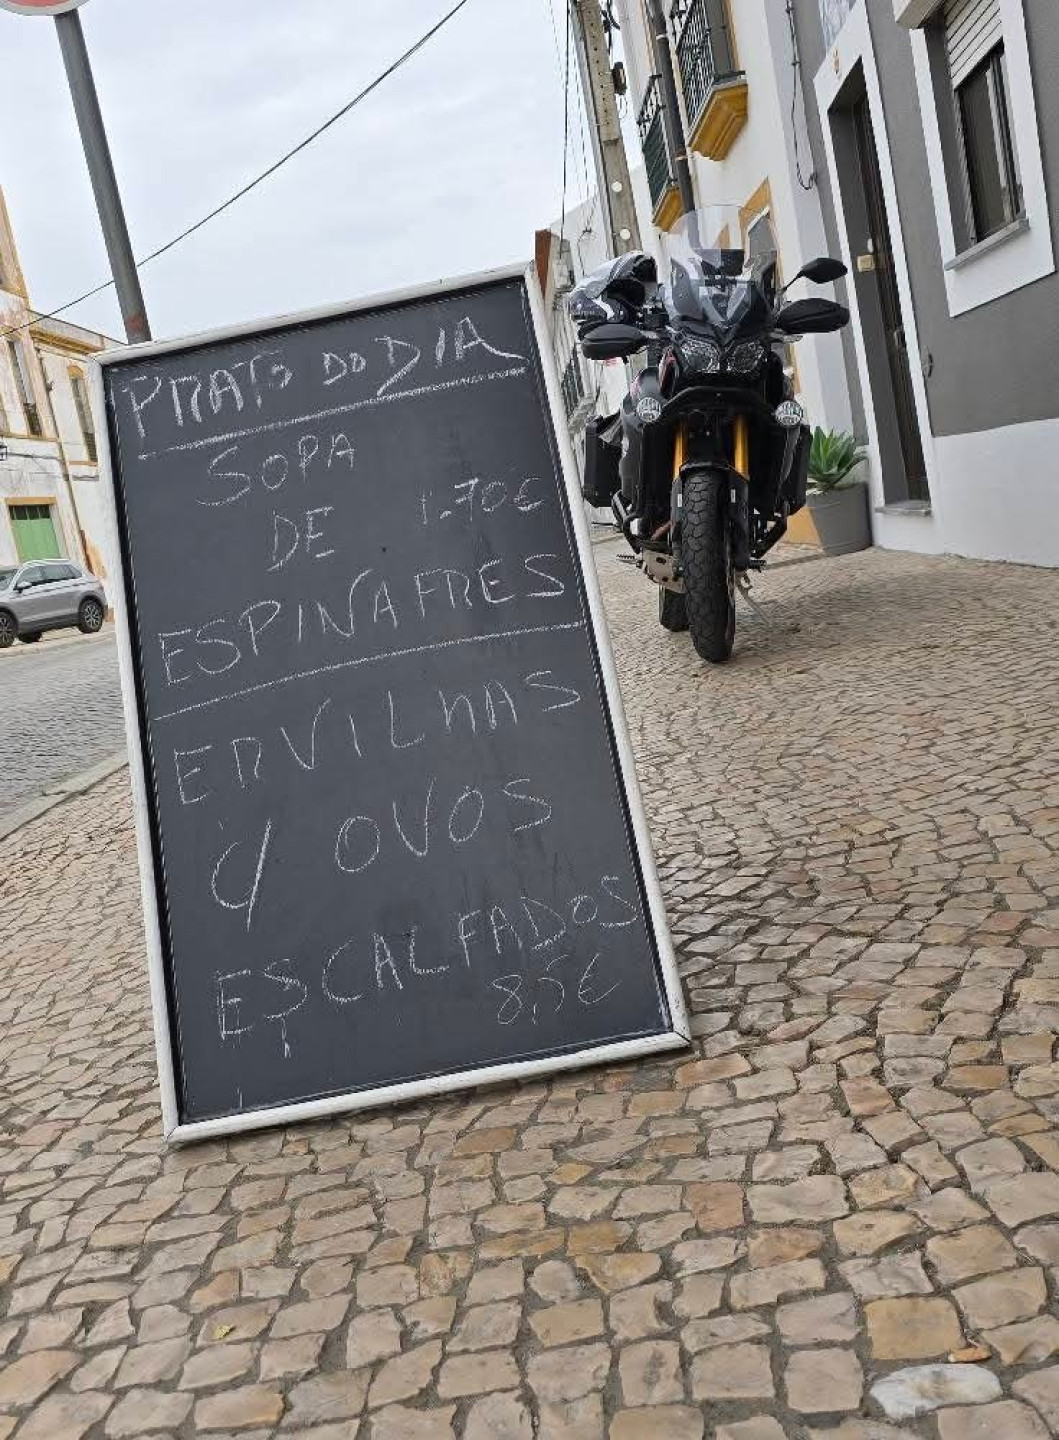 PRATO DO DIA
SOPA
DE 1.70€
ESPINAFRES
ERVILHAS
C/ OVOS
ESCALFADOS
8,5€